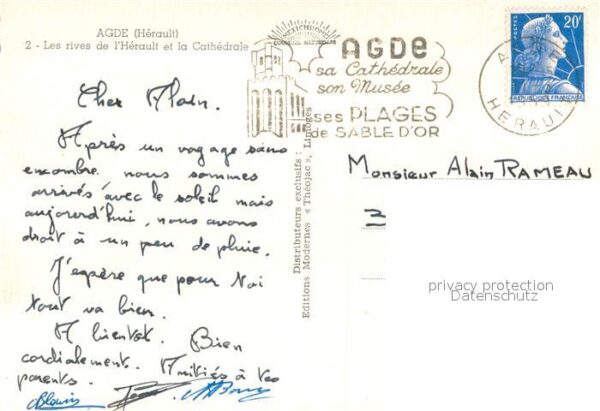 AGDE (Hérault)
2 - Les rives de l'Hérault et la Cathédrale
Cher Alain.
Après un voyage sans
encombre nous sommes
arrivés avec le soleil mais
aujourd'hui, nous avons
droit à un peu de pluie.
J'espère que pour toi
tout va bien.
A bientôt. Bien
cordialement. Amitiés à tes
parents.
Distributeurs exclusifs :
Editions Modernes « Théojac », Limoges
AGDE
sa Cathédrale
son Musée
ses PLAGES
de SABLE D'OR
POSTES
20F
REPUBLIQUE FRANÇAISE
HERAULT
Monsieur Alain RAMEAU
2
privacy protection
Datenschutz